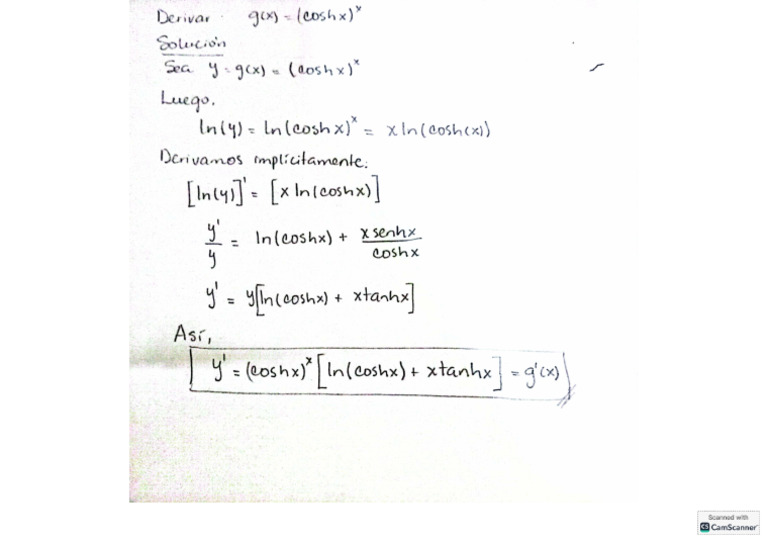 Derivar g(x) = (coshx)^x
Solución
Sea y = g(x) = (coshx)^x
Luego,
ln(y) = ln(coshx)^x = xln(cosh(x))
Derivamos implícitamente:
[ln(y)]' = [x ln(coshx)]
y'/y = ln(coshx) + xsenhx/coshx
y' = y[ln(coshx) + xtanhx]
Así,
y' = (coshx)^x [ln(coshx) + xtanhx] = g'(x)
Scanned with
CS CamScanner